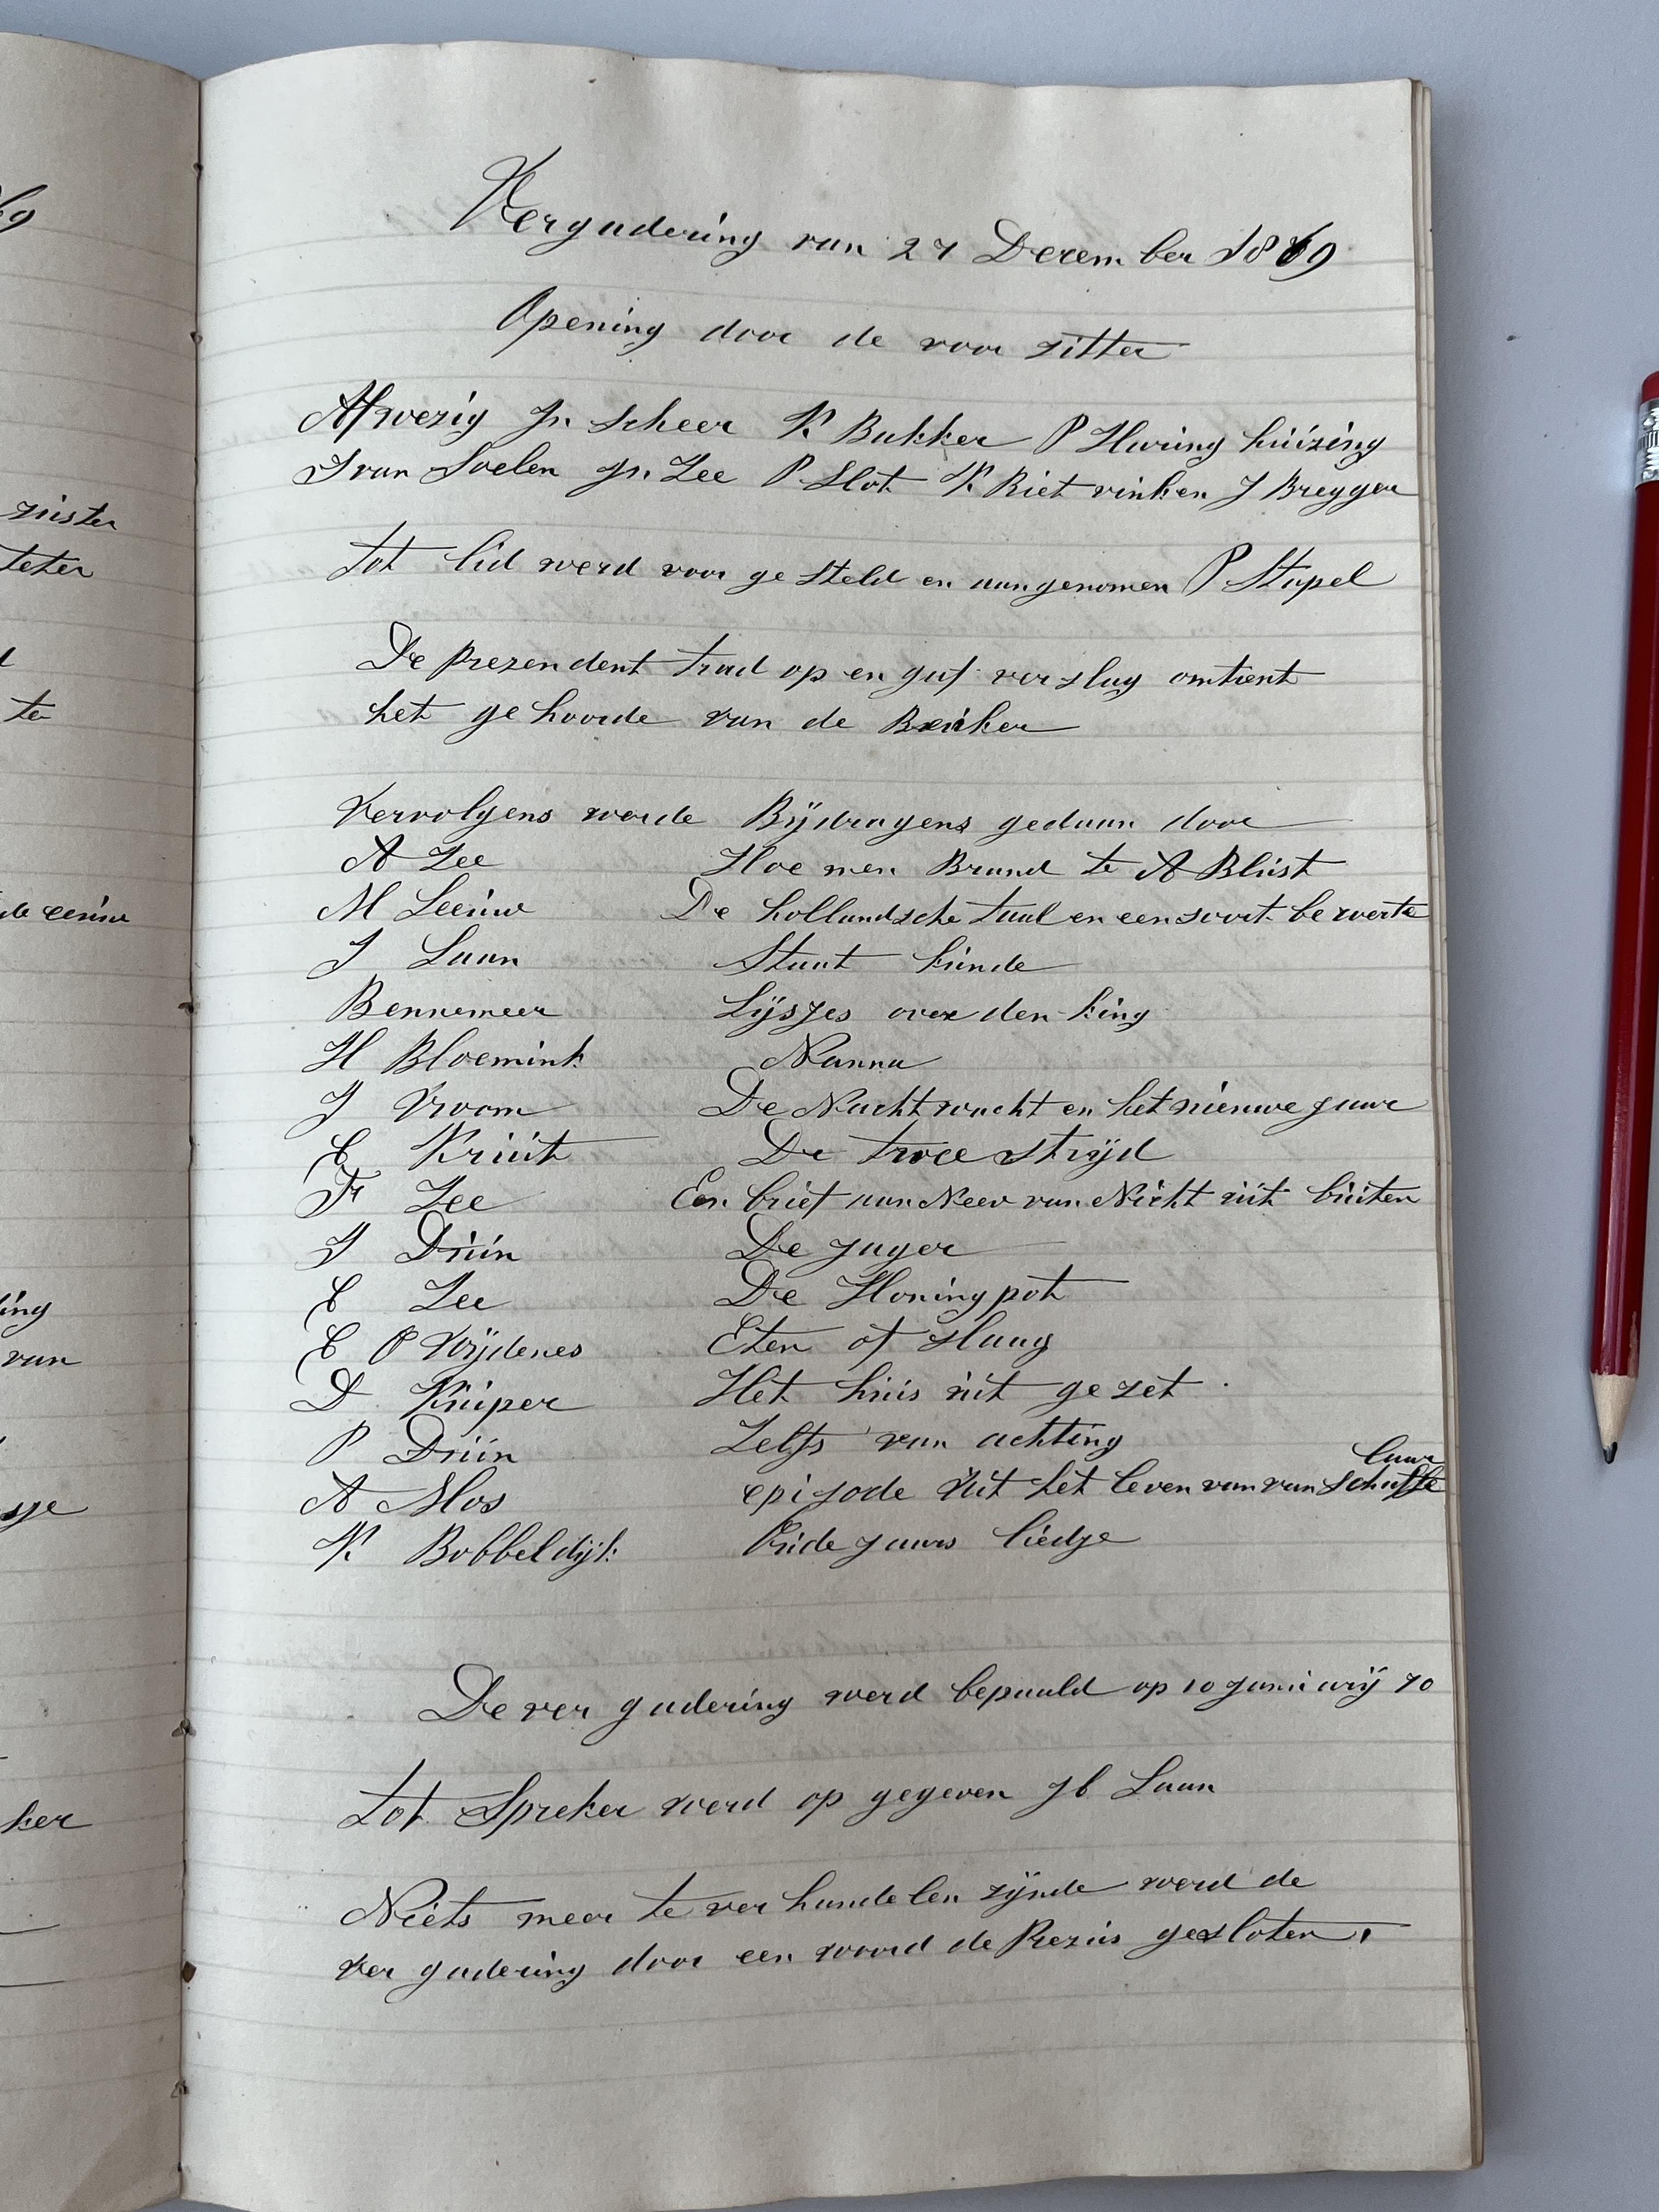 69
zuster
teter
te
de eeuw
ing
van
sje
ker
Vergadering van 27 December 1869
Opening door de voor zitter
Afwezig Jn Scheer K Bakker P Haring huizing
J van Soelen Jn Zee P Slot K Riet vinken J Bregger
tot lid werd voor ge steld en aangenomen P Stapel
De prezendent trad op en gaf ver slag omtrent
het ge hoorde van de
Vervolgens worde Bijdragens gedaan door
A Zee Hoe men Brand te A Blust
M Leeuw De hollandsche taal en een soort be roerte
J Laan Staat kunde
Bennemeer Lijsjes over den king
H Bloemink Nanna
J Vroom De Nacht wacht en het nieuwe jaar
C Kruit De twee strijd
Fr Zee Een brief aan Neev van Nicht uit buiten
J Druin De jager
C Zee De Honing pot
C P Wijdenes Eten of slaag
D Kuiper Het huis uit ge zet
P Druin Zelfs van achting
A Mos epi zode uit het leven van van Schaffelaar
K Bobbeldijk Oude jaars liedje
De ver gadering werd bepaald op 10 Januarij 70
tot Spreker werd op gegeven Jb Laan
Niets meer te ver handelen zijnde werd de
ver gadering door een woord de Prezus gesloten.